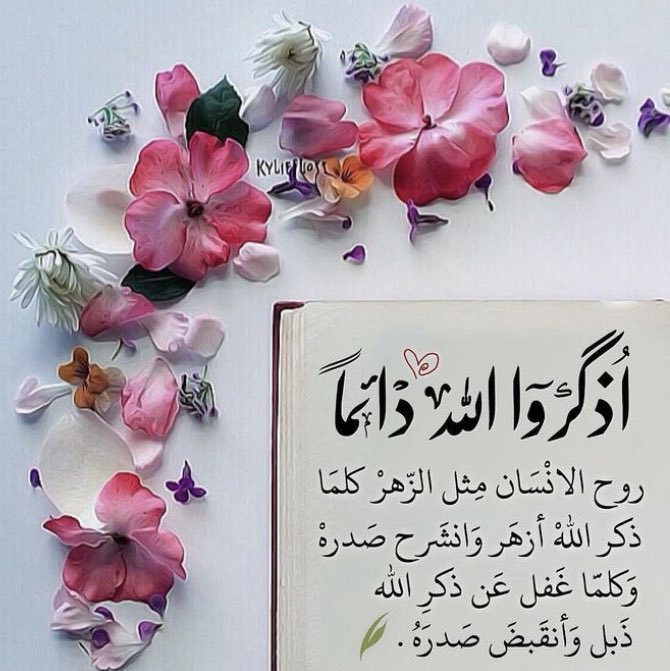 KYLIEELIOSE
اُذكُروَا اللّٰه دَائِماً
روح الانْسَان مِثل الزّهرْ كلمَا
ذكر اللّٰهْ أزهَر وَانشَرح صَدرهْ
وَكلمّا غَفل عَن ذكرِ اللّٰه
ذَبل وَأنقَبضَ صَدرَهُ .